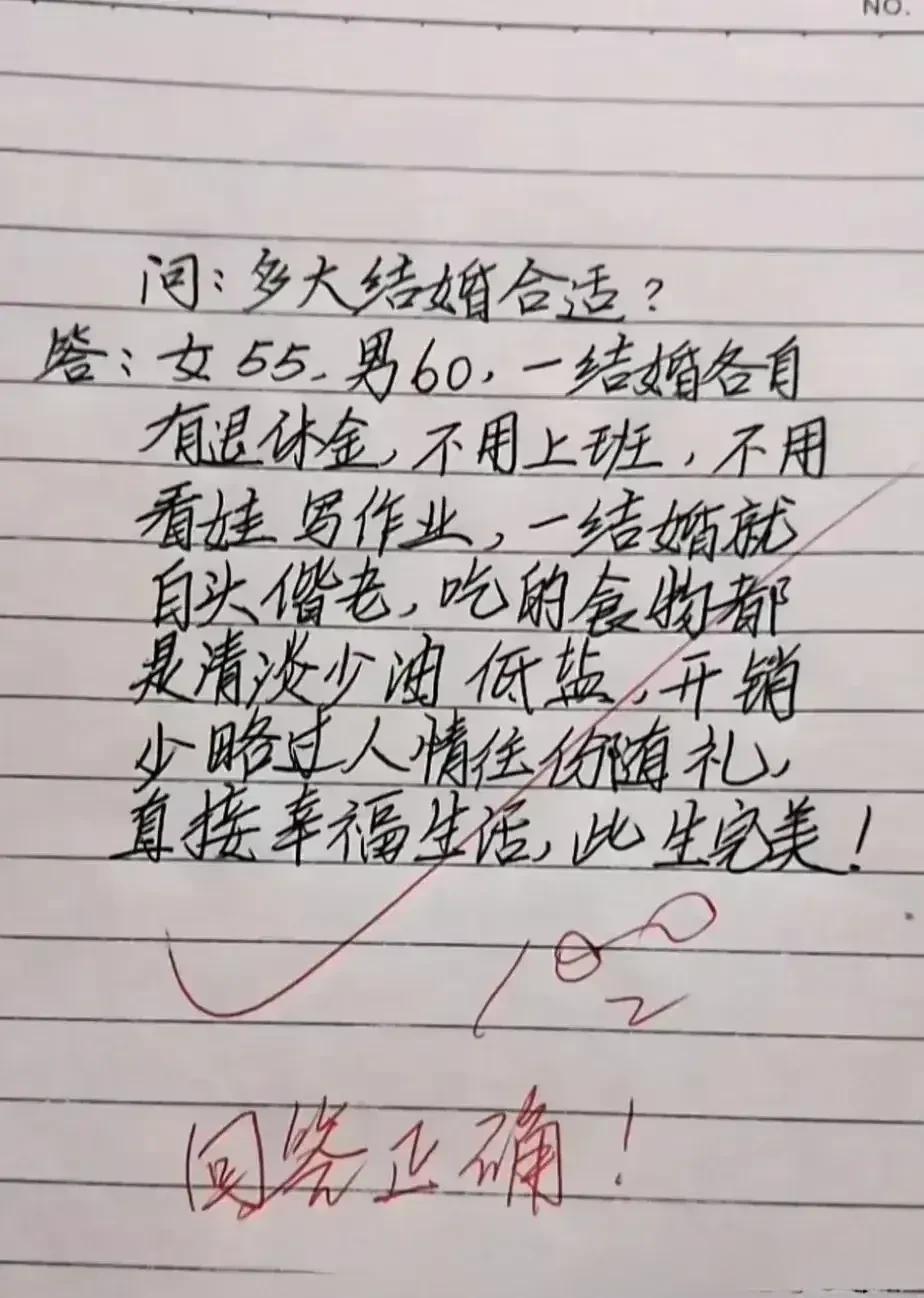 NO.
问：多大结婚合适？
答：女55、男60，一结婚各自
有退休金，不用上班，不用
看娃写作业，一结婚就
白头偕老，吃的食物都
是清淡少油低盐，开销
少略过人情住份随礼，
直接幸福生活，此生完美！
100
回答正确！